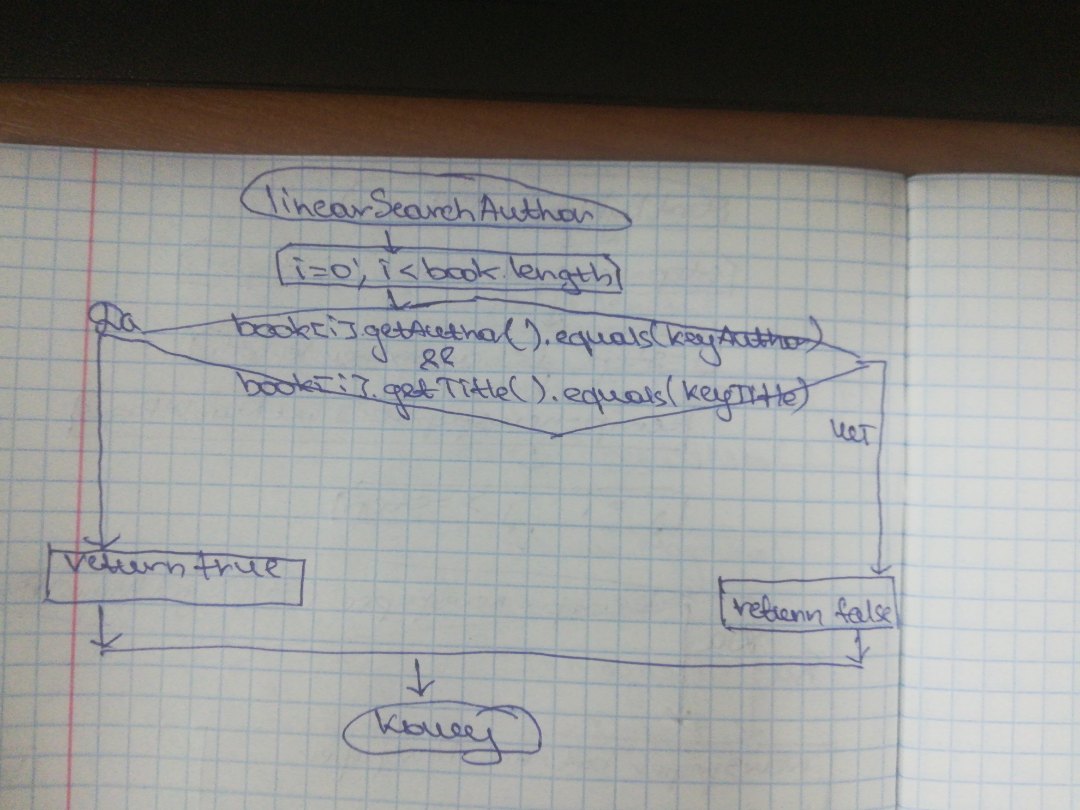 linearSearchAuthor
i=0; i<book.length
Да
book[i].getAuthor().equals(keyAuthor)
&&
book[i].getTitle().equals(keyTitle)
нет
return true
return false
конец